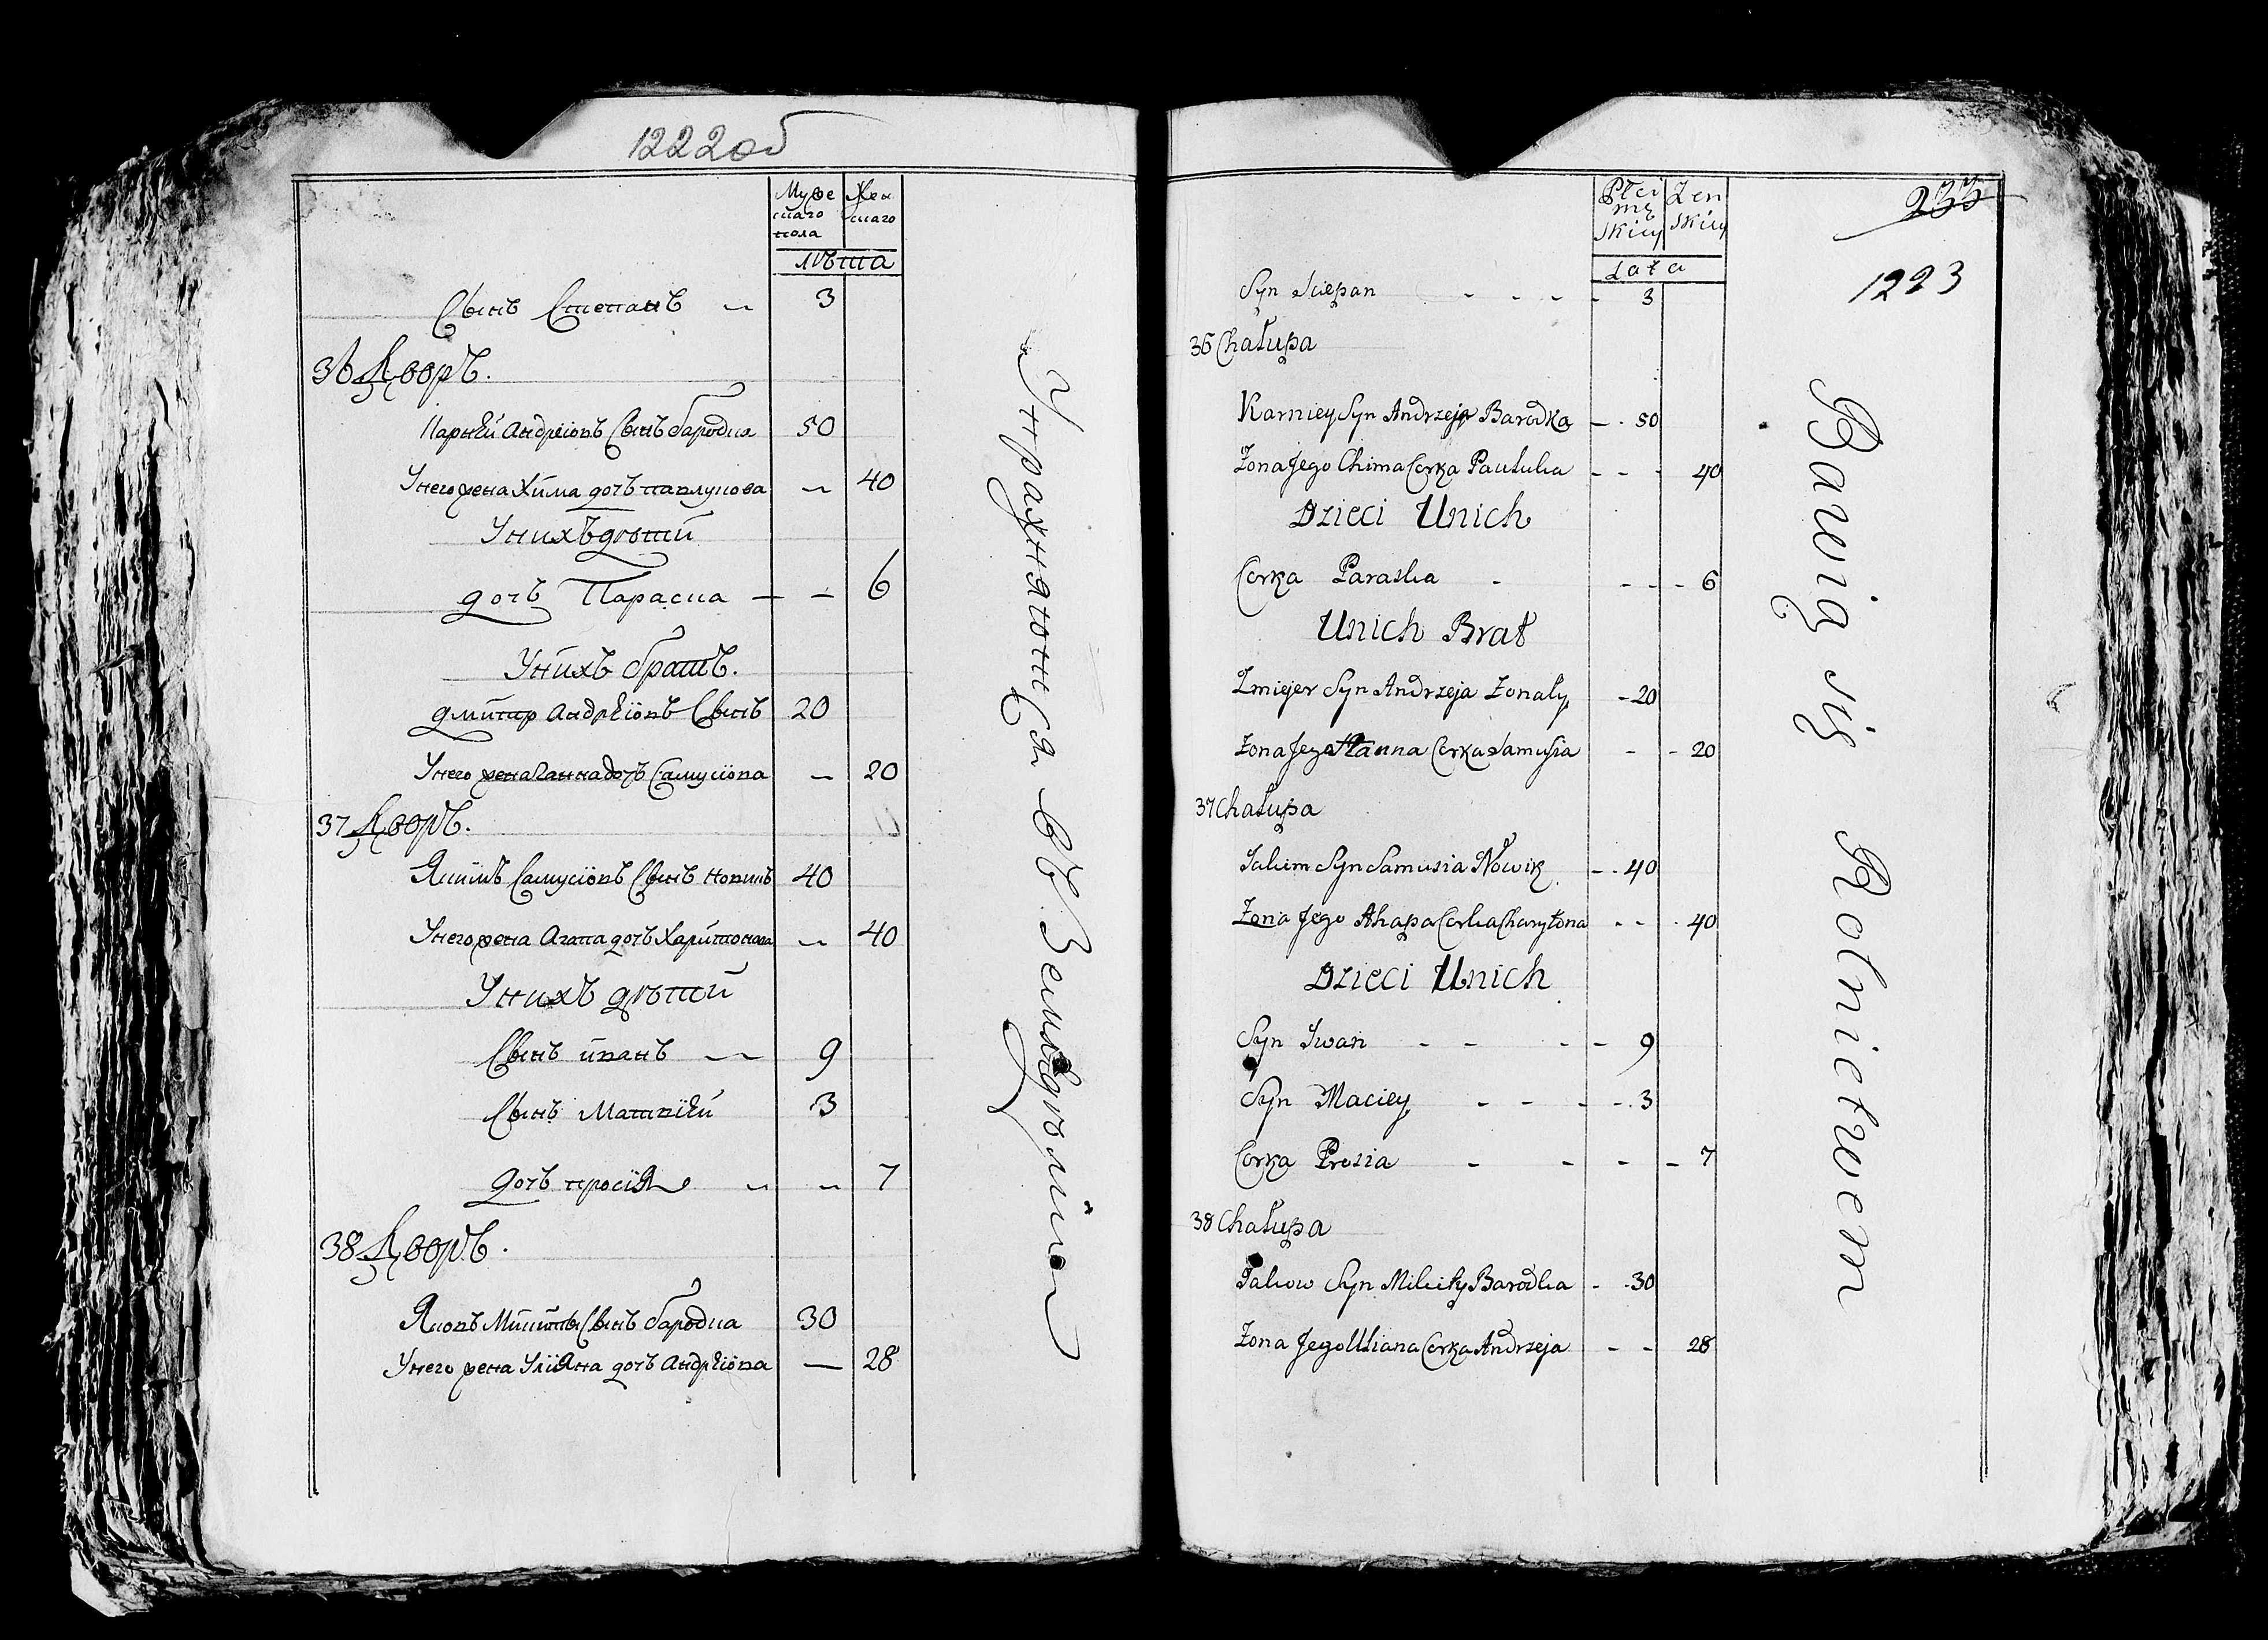 1222об
Муже Жен
скаго скаго
пола
лѣта
Сынъ Степанъ 3
36 Дворъ.
Карнѣй Андрѣіовъ Сынъ бародка 50
Унего жена Хима дочъ павлукова 40
Унихъ дѣтей
дочъ Параска — — 6
Унихъ братъ.
дмитръ Андрѣіовъ Сынъ 20
Унего жена ганна дочъ Самусіова 20
37 Дворъ.
Якимъ Самусіовъ Сынъ новикъ 40
Унего жена Агапа дочъ Харитонова 40
Унихъ дѣтей
Сынъ иванъ 9
Сынъ Матвѣй 3
дочъ просія 7
38 Дворъ.
Яковъ Микиты Сынъ бародка 30
Унего жена Уліяна дочъ Андрѣіова — 28
Упражняютсся въ Земледѣліи
Płci Zen
mę skiey
skiey
Lata
233
1223
Syn Sciepan - - - - 3
36 Chałupa
Karniey Syn Andrzeja Barodka - . 50
Zona Jego Chima Corka Pautuka - - - 40
Dzieci Unich
Corka Paraska - - - - 6
Unich Brat
Zmiejer Syn Andrzeja Zonaty - 20
Zona Jego Hanna Corka Samusia - - 20
37 Chałupa
Jakim Syn Samusia Nowik - . 40
Zona Jego Ahapa Corka Charytona - - . 40
Dzieci Unich
Syn Iwan - - - - 9
Syn Maciey - - - - . 3
Corka Prosia - - - - 7
38 Chałupa
Jakow Syn Mikity Barodka - . 30
Zona Jego Uliana Corka Andrzeja - - 28
Bawią się Rolnictwem